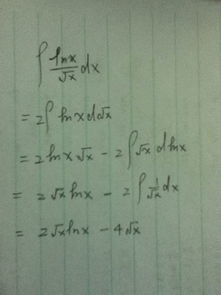 ∫ lnx/√x dx
= 2∫ lnx d√x
= 2lnx √x - 2∫ √x dlnx
= 2√x lnx - 2∫ 1/√x dx
= 2√x lnx - 4√x